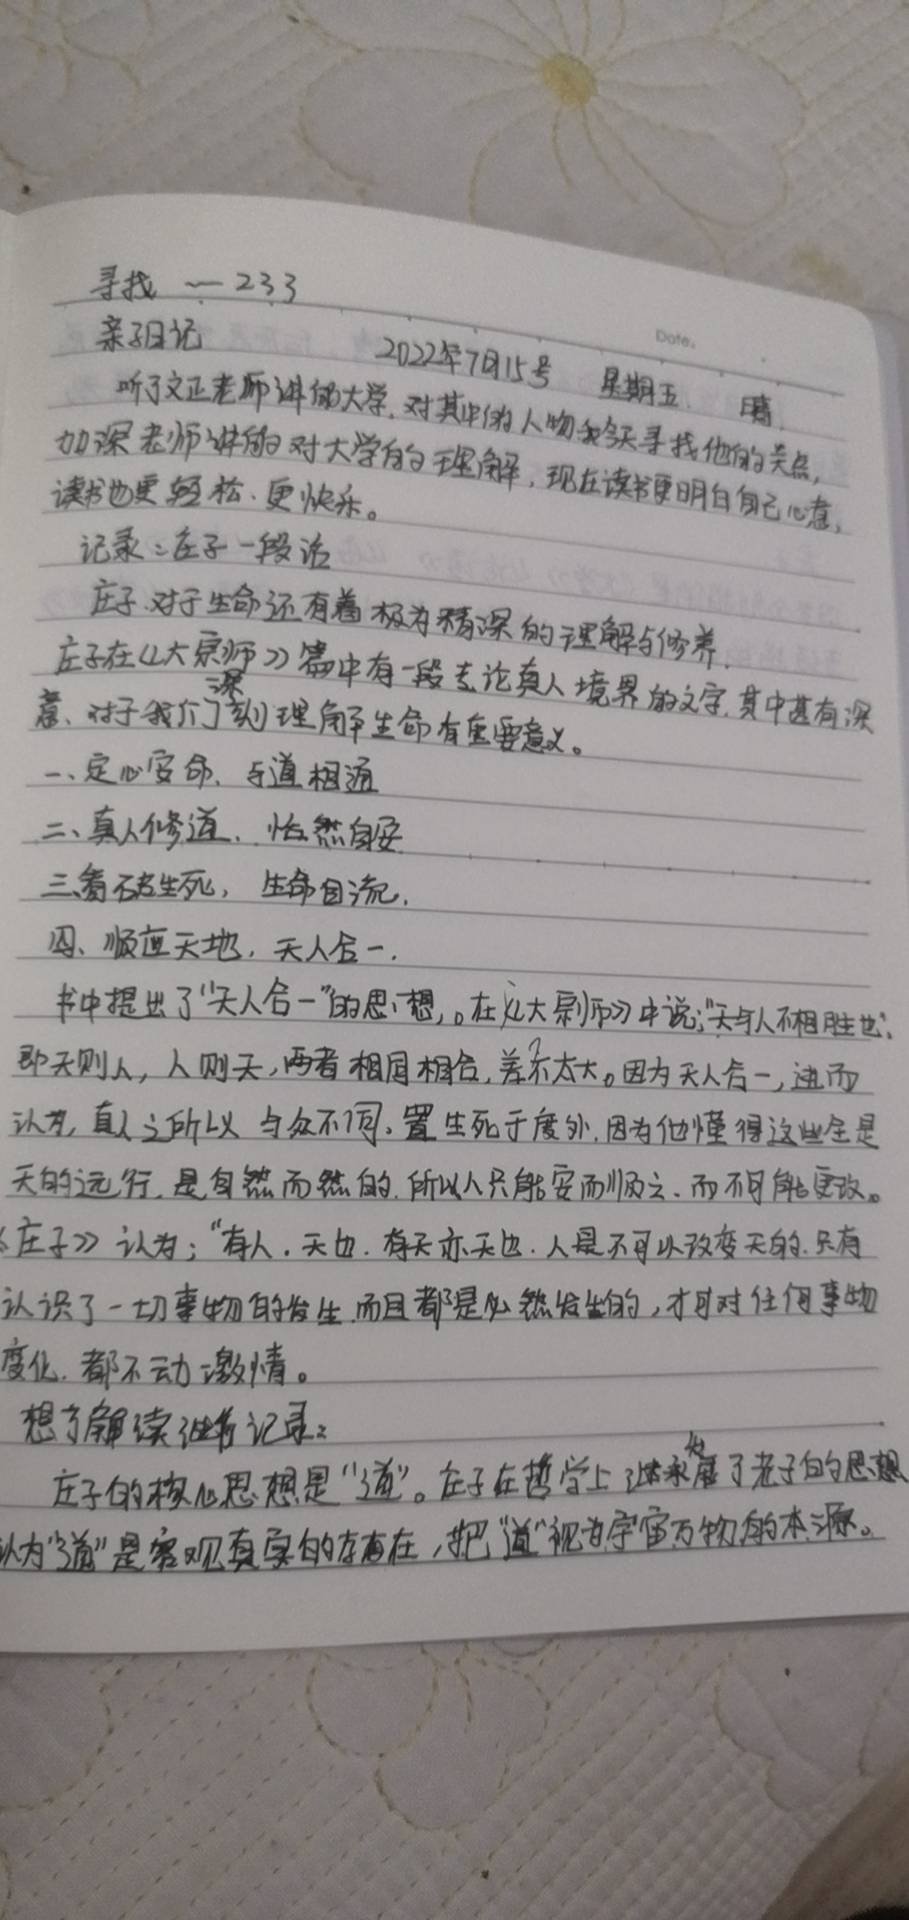 寻找 一233
Date.
亲子日记 2022年7月15号 星期五. 晴.
听了文正老师讲的大学,对其中的人物我今天寻找他的关点,
加深老师讲的对大学的理解,现在读书更明白自己心意,
读书也更轻松、更快乐。
记录:庄子一段话
庄子对于生命还有着极为精深的理解与修养.
庄子在《大宗师》篇中有一段专论真人境界的文字,其中甚有深
意、对于我们深刻理解生命有重要意义。
一、定心安命、与道相通
二、真人修道、怡然自安
三、看破生死, 生命自流.
四、顺应天地,天人合一.
书中提出了“天人合一”的思想,。在《大宗师》中说:“天与人不相胜也”,
即天则人,人则天,两者相同相合,差不太大。因为天人合一,进而
认为,真人之所以与众不同、置生死于度外,因为他懂得这些全是
天的运行,是自然而然的,所以人只能安而顺之、而不可能更改。
《庄子》认为:“有人,天也.有天亦天也.人是不可以改变天的.只有
认识了一切事物的发生,而且都是必然发生的,才可对任何事物
变化.都不动激情。
想了解读继者记录:
庄子的核心思想是“道”。庄子在哲学上继承发展了老子的思想
认为“道”是客观真实的存在,并把“道”视为宇宙万物的本源。